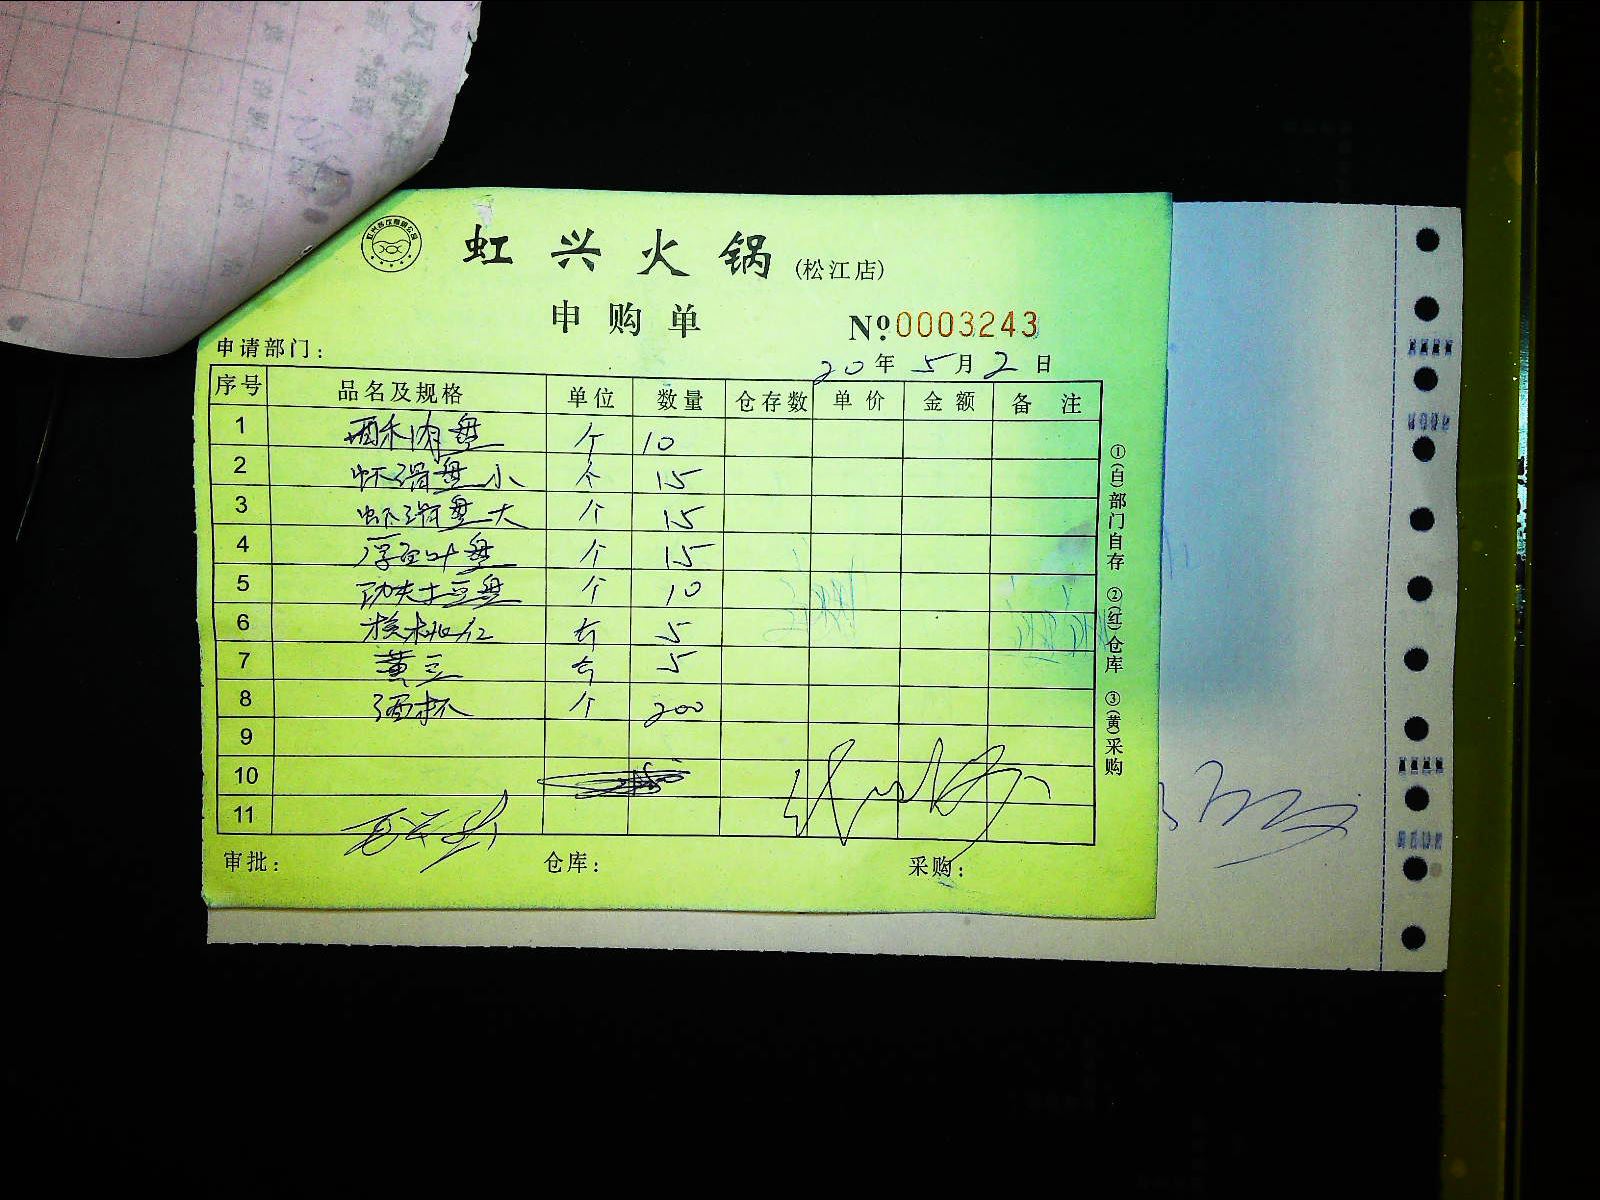 虹兴火锅 (松江店)
申购单 №0003243
申请部门: 20年5月2日
序号 品名及规格 单位 数量 仓存数 单价 金额 备注
1 酥肉盘 个 10
2 虾滑盘小 个 15
3 虾滑盘大 个 15
4 厚百叶盘 个 15
5 功夫土豆盘 个 10
6 核桃仁 斤 5
7 黄豆 斤 5
8 酒杯 个 200
9
10
11
审批: 仓库: 采购:
①(白)部门自存 ②(红)仓库 ③(黄)采购